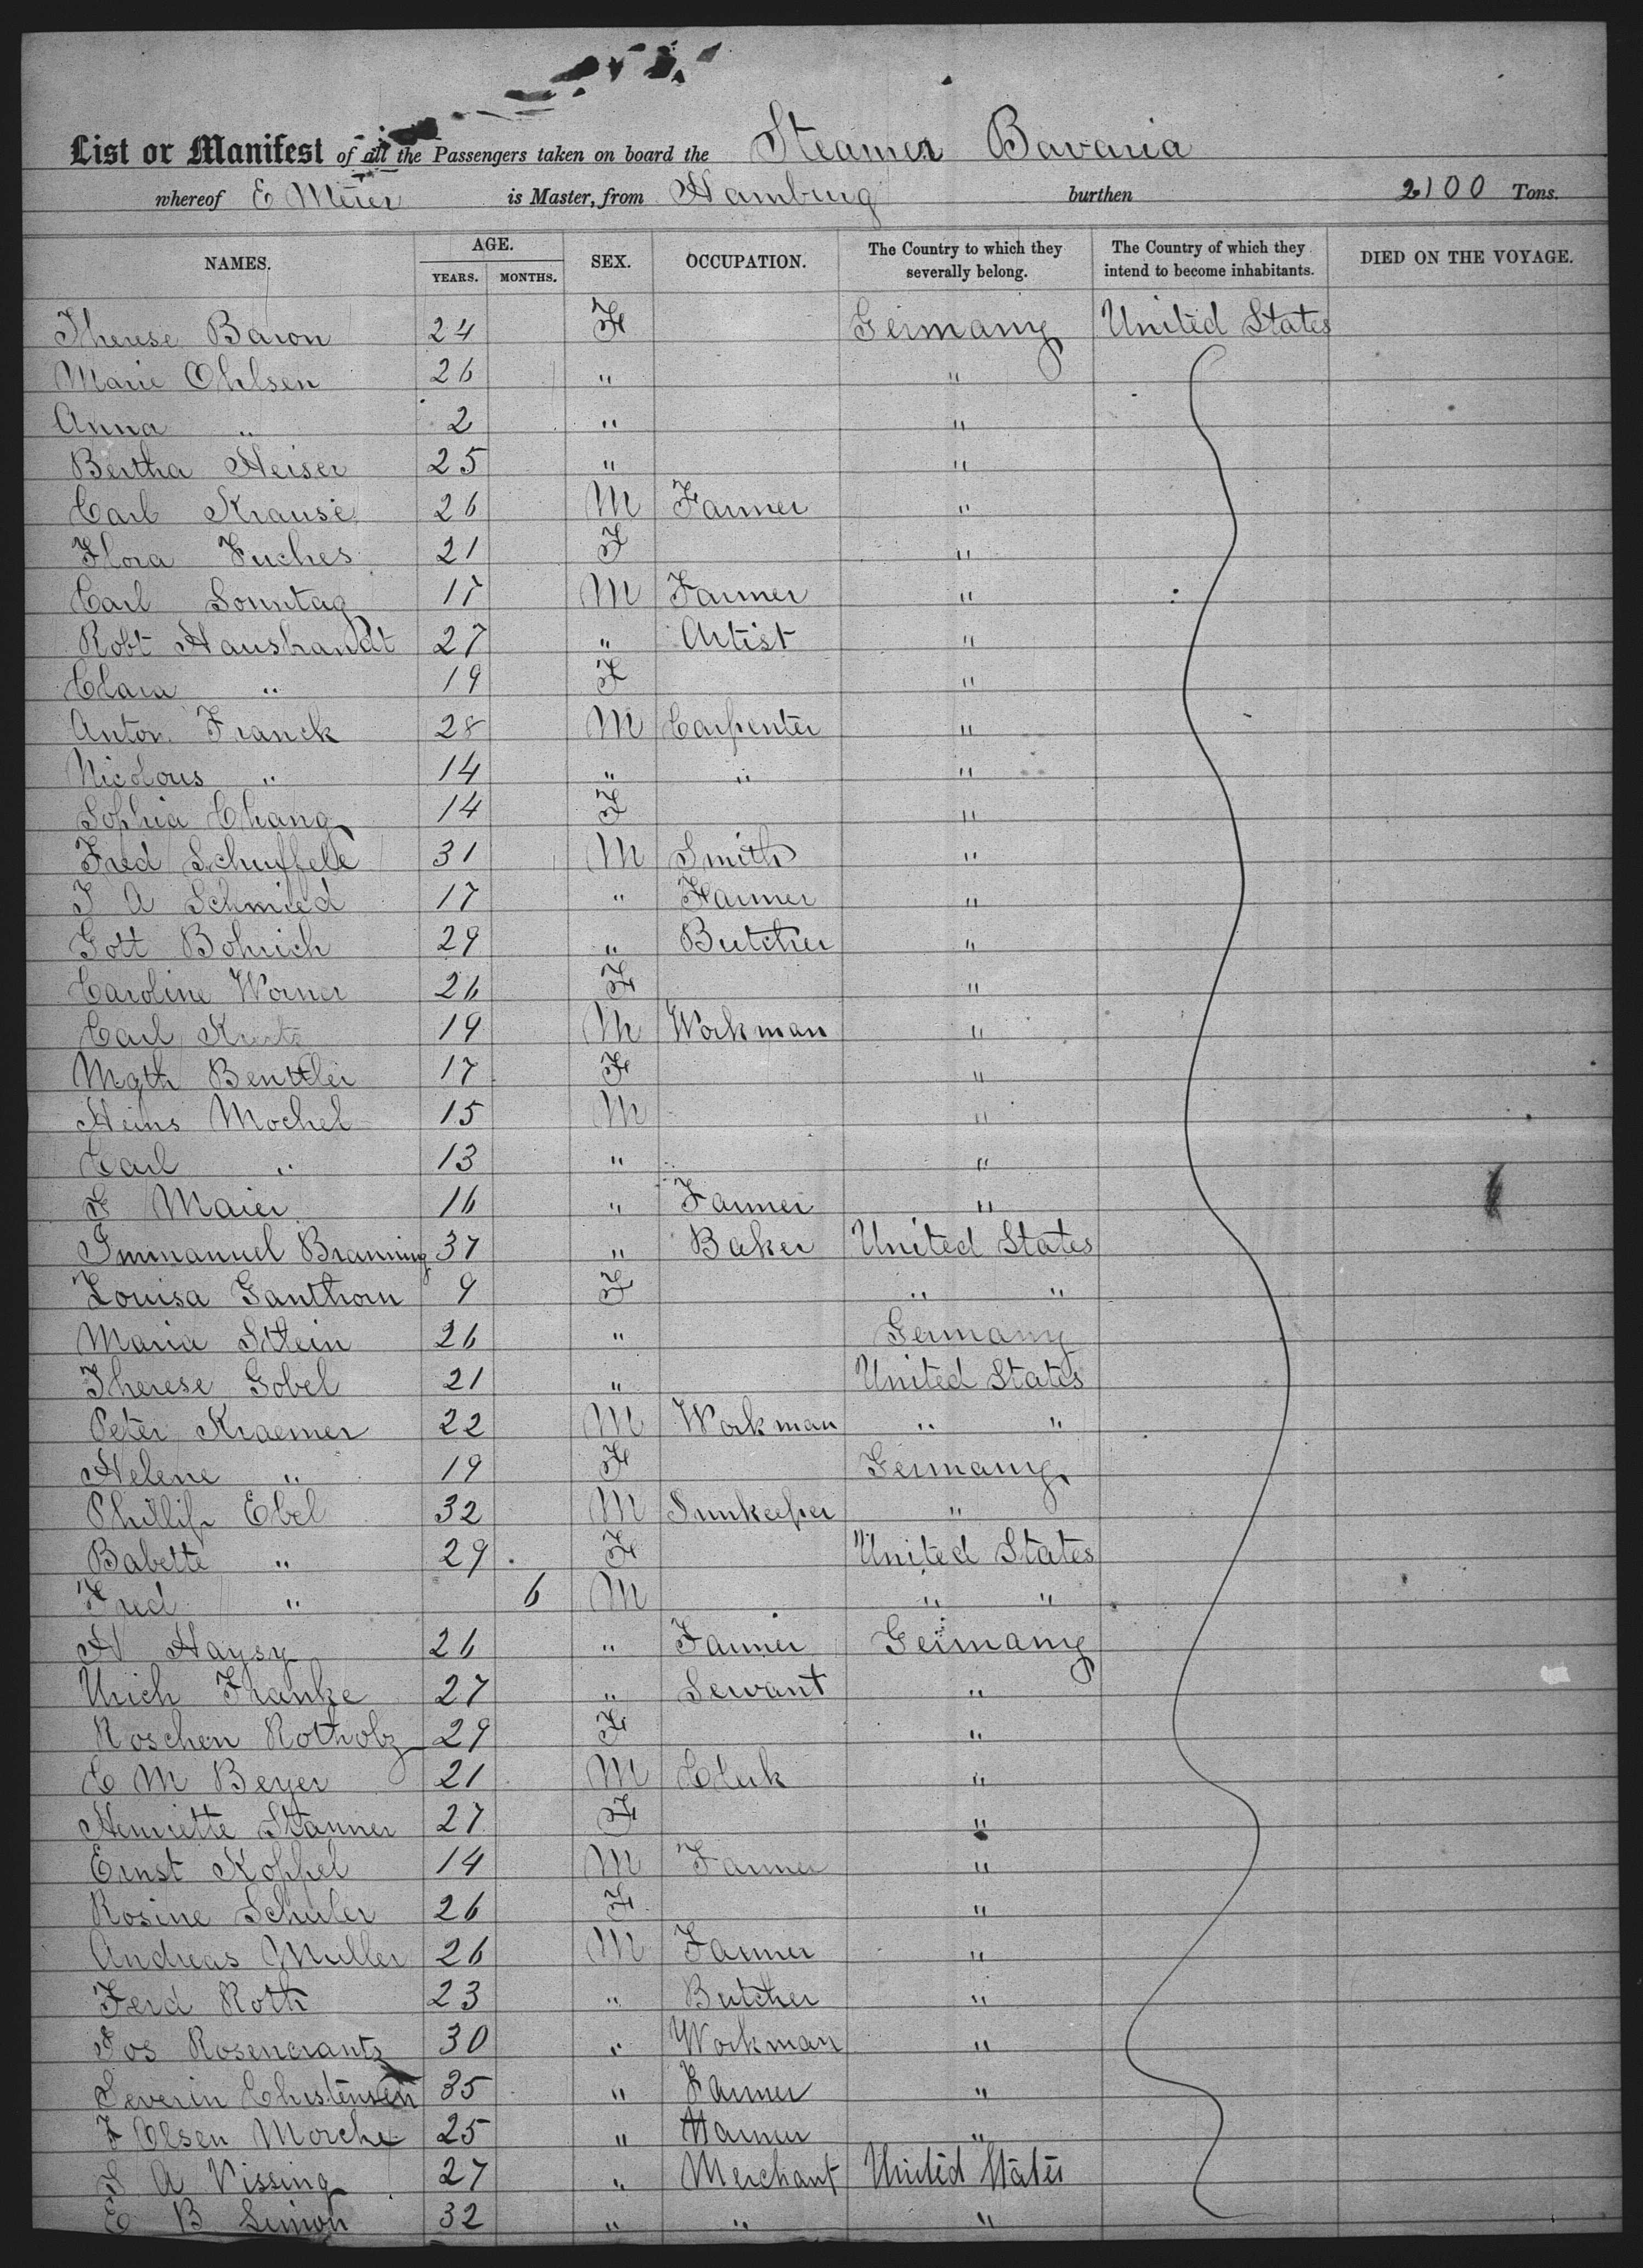 List or Manifest of all the Passengers taken on board the Steamer Bavaria
whereof E Meier is Master, from Hamburg burthen 2100 Tons.
NAMES. AGE. YEARS. MONTHS. SEX. OCCUPATION. The Country to which they severally belong. The Country of which they intend to become inhabitants. DIED ON THE VOYAGE.
Therese Baron 24 F Germany United States
Marie Ohlsen 26 " "
Anna " 2 " "
Bertha Heiser 25 " "
Carl Krause 26 M Farmer "
Flora Fuches 21 F "
Carl Sonntag 17 M Farmer "
Robt Haushandt 27 " Artist "
Clara " 19 F "
Anton Franck 28 M Carpenter "
Nicolous " 14 " " "
Sophia Chang 14 F "
Fred Schuffele 31 M Smith "
J A Schmied 17 " Farmer "
Gott Bohrich 29 " Butcher "
Caroline Worner 26 F "
Carl 19 M Workman "
Math Benttler 17 F "
Heins Mochel 15 M "
Carl " 13 " "
F Maier 16 " Farmer "
Immanuel Branning 37 " Baker United States
Louisa Ganthorn 9 F " "
Maria Stein 26 " Germany
Therese Gobel 21 " United States
Peter Kraemer 22 M Workman " "
Helene " 19 F Germany
Phillip Ebel 32 M Innkeeper "
Babette " 29 F United States
Fred " 6 M " "
N Haysy 26 " Farmer Germany
Urich Franke 27 " Servant "
Roschen Rotholz 29 F "
C M Beyer 21 M Clerk "
Henriette Stanner 27 F "
Ernst Koppel 14 M Farmer "
Rosine Schuler 26 F "
Andreas Muller 26 M Farmer "
Ferd Roth 23 " Butcher "
Jos Rosencrants 30 " Workman "
Severin Christensen 35 " Farmer "
J Olsen Morche 25 " Farmer "
S A Vissing 27 " Merchant United States
E B Simon 32 " " "